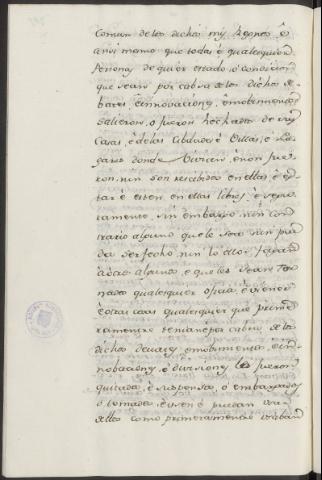 Comun de los dichos mis Regnos, é
asi mismo que todas é qualesquier
Personas de qualquier estado, ó condicion
que sean por cabsa de los dichos de-
bates, é innovaciones, é mobimientos
salieron, ó fueron hechados de sus
Casas, é de las Cibdades é Villas, é Lu-
gares donde Vivian, é non fue-
ron, nin son recibidos en ellas, é es-
tar é esten en ellas libres, é segu-
ramente, sin embargo, nin con-
trario alguno, que les sea, nin pue-
da ser fecho, nin
alguno, é que les sean tor-
nados qualesquier oficios, é
é otras cosas qualesquier que prime-
ramente tenian é por cabsa de los
dichos devates, é mobimientos, é in-
nobaciones, é divisiones les fueron
quitados, é suspensos, ó embargados
ó tomados, é usen é puedan usar
dellos como primeramente usaban